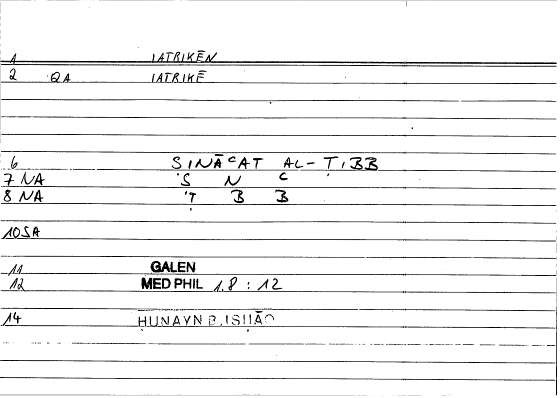 1 IATRIKĒN
2 QA IATRIKĒ
6 ṢINĀᶜAT AL-ṬIBB
7 NA Ṣ N ᶜ
8 NA Ṭ B B
10 SA
11 GALEN
12 MED PHIL 1.8 : 12
14 ḤUNAYN B. ISḤĀQ